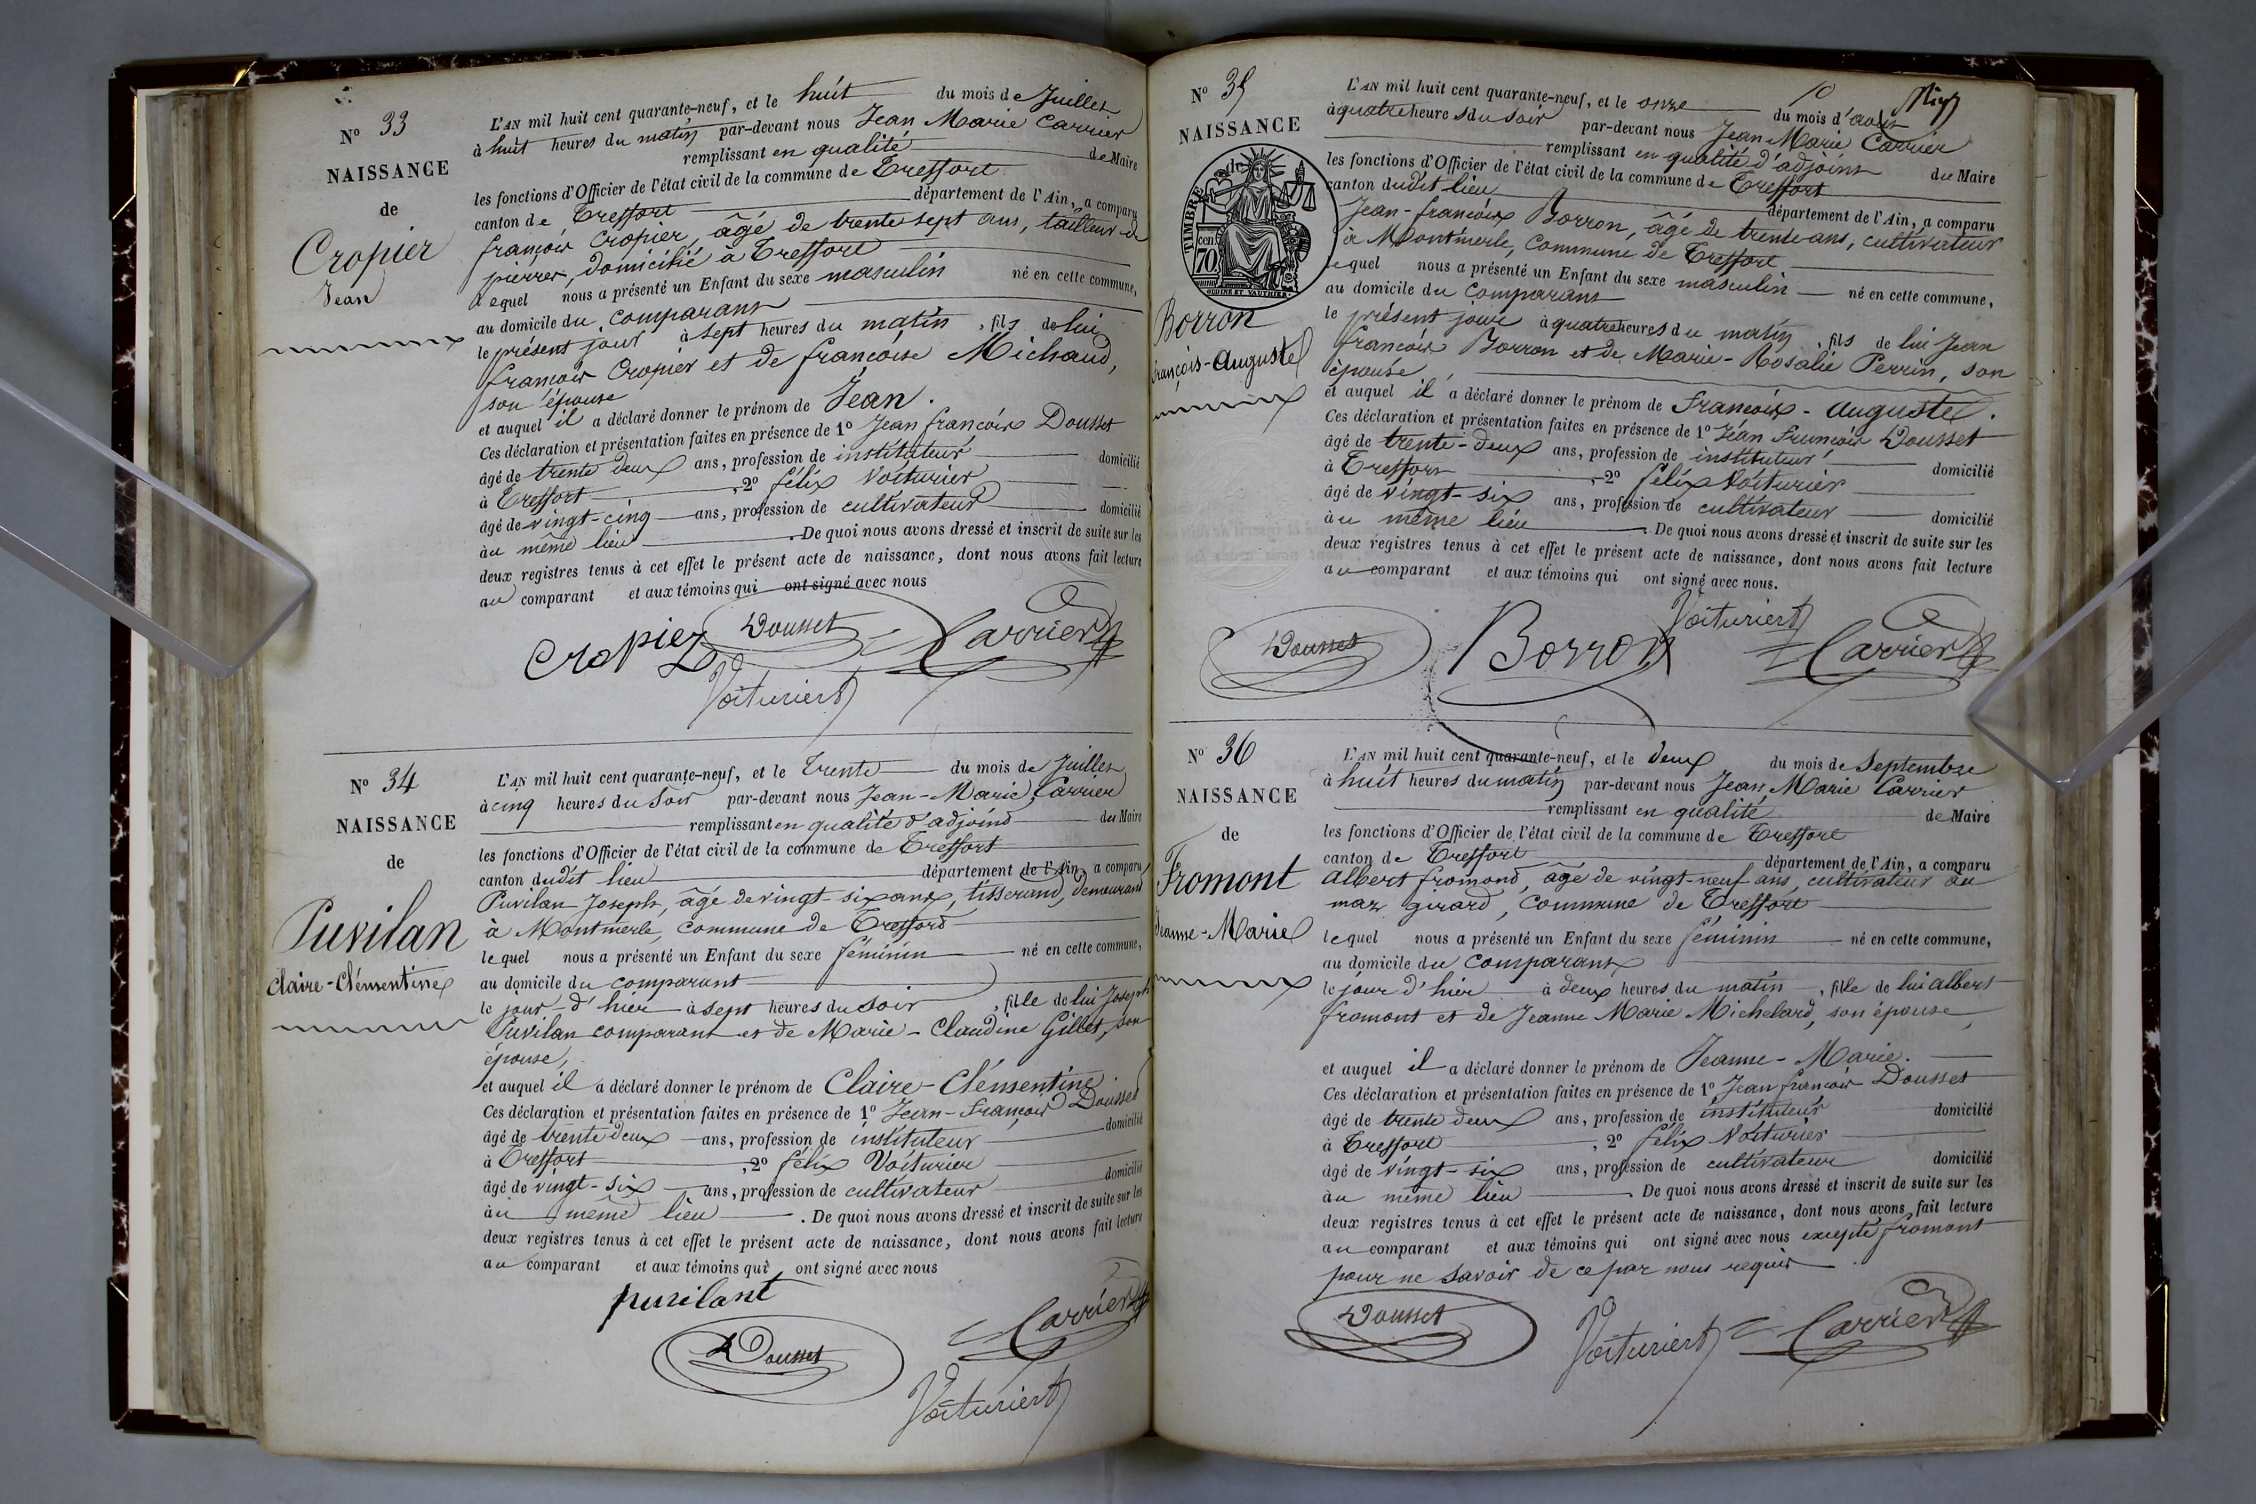 N° 33
NAISSANCE
de
Cropier
Jean
L'AN mil huit cent quarante-neuf, et le huit du mois de Juillet
à huit heures du matin par-devant nous Jean Marie Carrier
remplissant en qualité de Maire
les fonctions d'Officier de l'état civil de la commune de Treffort
canton de Treffort département de l'Ain, a comparu
françois Cropier, âgé de trente sept ans, tailleur de
pierres, domicilié à Treffort
lequel nous a présenté un Enfant du sexe masculin né en cette commune,
au domicile du comparant
le présent jour à sept heures du matin, fils de lui
françois Cropier et de françoise Michaud,
son épouse
et auquel il a déclaré donner le prénom de Jean.
Ces déclaration et présentation faites en présence de 1° Jean françois Dousset
âgé de trente deux ans, profession de instituteur domicilié
à Treffort, 2° félix Voiturier
âgé de vingt-cinq ans, profession de cultivateur domicilié
au même lieu. De quoi nous avons dressé et inscrit de suite sur les
deux registres tenus à cet effet le présent acte de naissance, dont nous avons fait lecture
au comparant et aux témoins qui ont signé avec nous
Cropier Dousset Carrier
Voiturier
N° 34
NAISSANCE
de
Puvilan
Claire-Clémentine
L'AN mil huit cent quarante-neuf, et le trente du mois de Juillet
à cinq heures du soir par-devant nous Jean-Marie Carrier
remplissant en qualité d'adjoint du Maire
les fonctions d'Officier de l'état civil de la commune de Treffort
canton dudit lieu département de l'Ain, a comparu
Puvilan Joseph, âgé de vingt-six ans, tisserand, demeurant
à Montmerle, commune de Treffort
lequel nous a présenté un Enfant du sexe féminin né en cette commune,
au domicile du comparant
le jour d'hier à sept heures du soir, fille de lui Joseph
Puvilan comparant et de Marie-Claudine Gillet, son
épouse,
et auquel il a déclaré donner le prénom de Claire-Clémentine
Ces déclaration et présentation faites en présence de 1° Jean-françois Dousset
âgé de trente deux ans, profession de instituteur domicilié
à Treffort, 2° félix Voiturier
âgé de vingt-six ans, profession de cultivateur domicilié
au même lieu. De quoi nous avons dressé et inscrit de suite sur les
deux registres tenus à cet effet le présent acte de naissance, dont nous avons fait lecture
au comparant et aux témoins qui ont signé avec nous
puvilant
Dousset Carrier
Voiturier
10
N° 35
NAISSANCE
de
TIMBRE
cent.
70
OUDINÉ ET VAUTHIER.
Borron
françois-Auguste
L'AN mil huit cent quarante-neuf, et le onze du mois d'août
à quatre heures du soir par-devant nous Jean Marie Carrier
remplissant en qualité d'adjoint du Maire
les fonctions d'Officier de l'état civil de la commune de Treffort
canton dudit lieu département de l'Ain, a comparu
Jean-françois Borron, âgé de trente ans, cultivateur
à Montmerle, commune de Treffort
lequel nous a présenté un Enfant du sexe masculin né en cette commune,
au domicile du comparant
le présent jour à quatre heures du matin, fils de lui Jean
françois Borron et de Marie-Rosalie Perrin, son
épouse
et auquel il a déclaré donner le prénom de françois-auguste.
Ces déclaration et présentation faites en présence de 1° Jean françois Dousset
âgé de trente-deux ans, profession de instituteur domicilié
à Treffort, 2° félix Voiturier
âgé de vingt-six ans, profession de cultivateur domicilié
au même lieu. De quoi nous avons dressé et inscrit de suite sur les
deux registres tenus à cet effet le présent acte de naissance, dont nous avons fait lecture
au comparant et aux témoins qui ont signé avec nous.
Dousset Borron Voiturier Carrier
N° 36
NAISSANCE
de
Fromont
Jeanne-Marie
L'AN mil huit cent quarante-neuf, et le deux du mois de Septembre
à huit heures du matin par-devant nous Jean Marie Carrier
remplissant en qualité de Maire
les fonctions d'Officier de l'état civil de la commune de Treffort
canton de Treffort département de l'Ain, a comparu
albert fromond, âgé de vingt-neuf ans, cultivateur au
maz girard, commune de Treffort
lequel nous a présenté un Enfant du sexe féminin né en cette commune,
au domicile du comparant
le jour d'hier à deux heures du matin, fille de lui albert
fromont et de Jeanne Marie Michelard, son épouse,
et auquel il a déclaré donner le prénom de Jeanne-Marie.
Ces déclaration et présentation faites en présence de 1° Jean françois Dousset
âgé de trente deux ans, profession de instituteur domicilié
à Treffort, 2° félix Voiturier
âgé de vingt-six ans, profession de cultivateur domicilié
au même lieu. De quoi nous avons dressé et inscrit de suite sur les
deux registres tenus à cet effet le présent acte de naissance, dont nous avons fait lecture
au comparant et aux témoins qui ont signé avec nous excepté fromont
pour ne savoir de ce par nous requis.
Dousset Voiturier Carrier